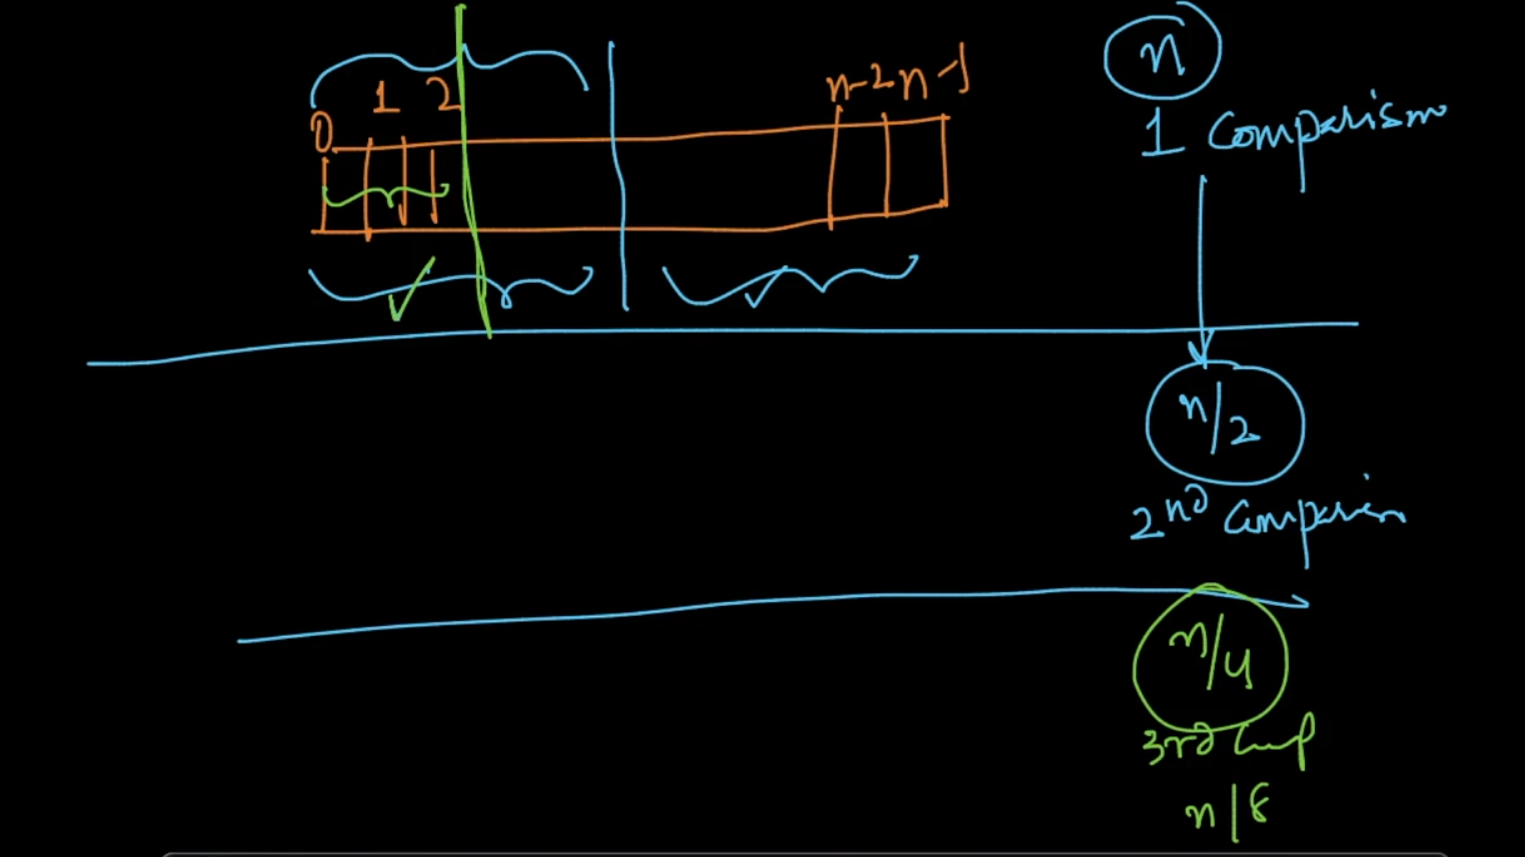 n
n-2 n-1
0 1 2
1 Comparism
n/2
2nd Comparism
n/4
3rd Comp
n/8